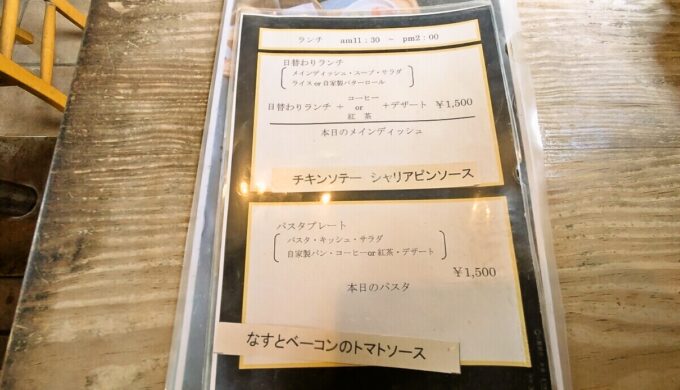 ランチ am11：30 ～ pm2：00
日替わりランチ
メインディッシュ・スープ・サラダ
ライス or 自家製バターロール
コーヒー
日替わりランチ + or +デザート ￥1,500
紅茶
本日のメインディッシュ
チキンソテー シャリアピンソース
パスタプレート
パスタ・キッシュ・サラダ
自家製パン・コーヒーor 紅茶・デザート
￥1,500
本日のパスタ
なすとベーコンのトマトソース